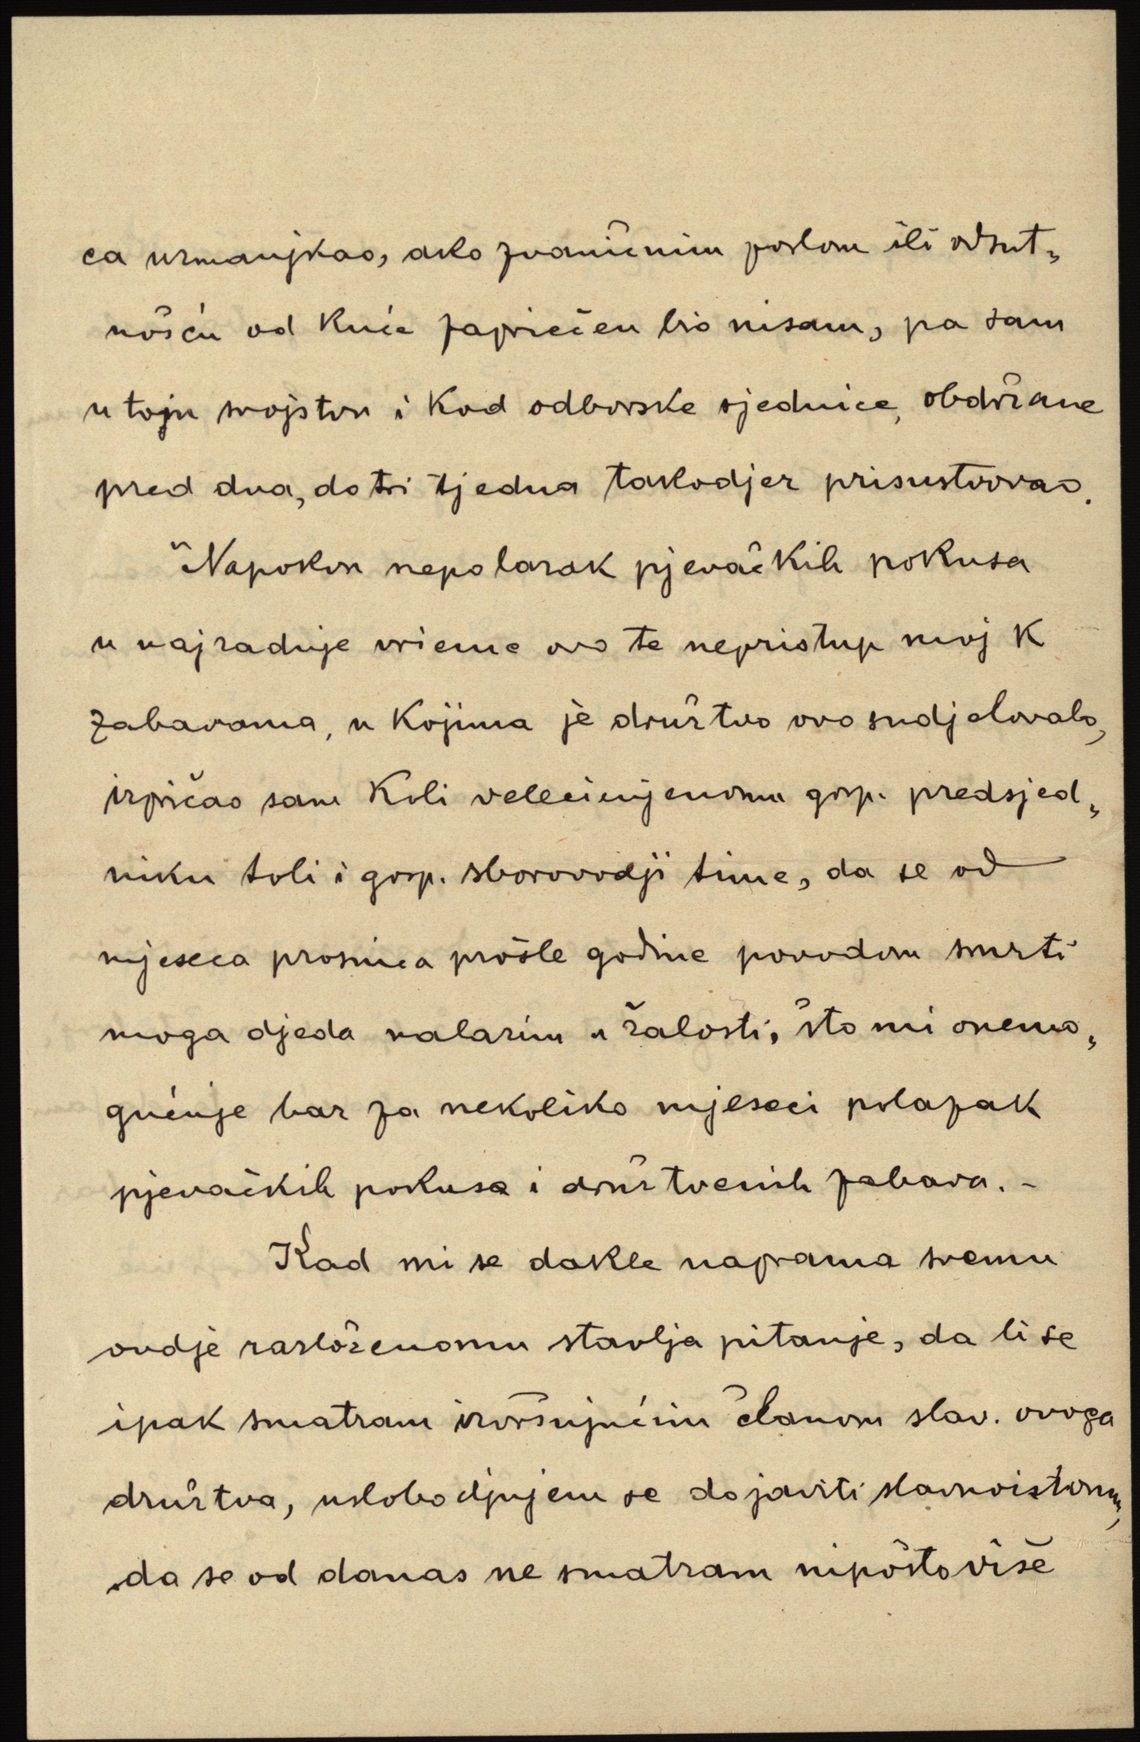 ca uzmanjkao, ako zvaničnim poslom ili odsut„
nošću od kuće zapriečen bio nisam, pa sam
u toju svojstvu i kod odborske sjednice, obdržane
pred dva, do tri tjedna takodjer prisustvovao.
Napokon nepolazak pjevačkih pokusa
u najzadnje vrieme ovo te nepristup moj k
zabavama, u kojima je društvo ovo sudjelovalo,
izpričao sam koli velecienjenomu gosp. predsjed„
niku toli i gosp. sborovodji time, da se od
mjeseca prosinca prošle godine povodom smrti
moga djeda nalazim u žalosti, što mi onemo„
gućuje bar za nekoliko mjeseci polazak
pjevačkih pokusa i družtvenih zabava. –
Kad mi se dakle naprama svemu
ovdje razloženomu stavlja pitanje, da li se
ipak smatram izvršujućim članom slav. ovoga
družtva, uslobodjujem se dojaviti slavnoistomu,
da se od danas ne smatram nipošto više